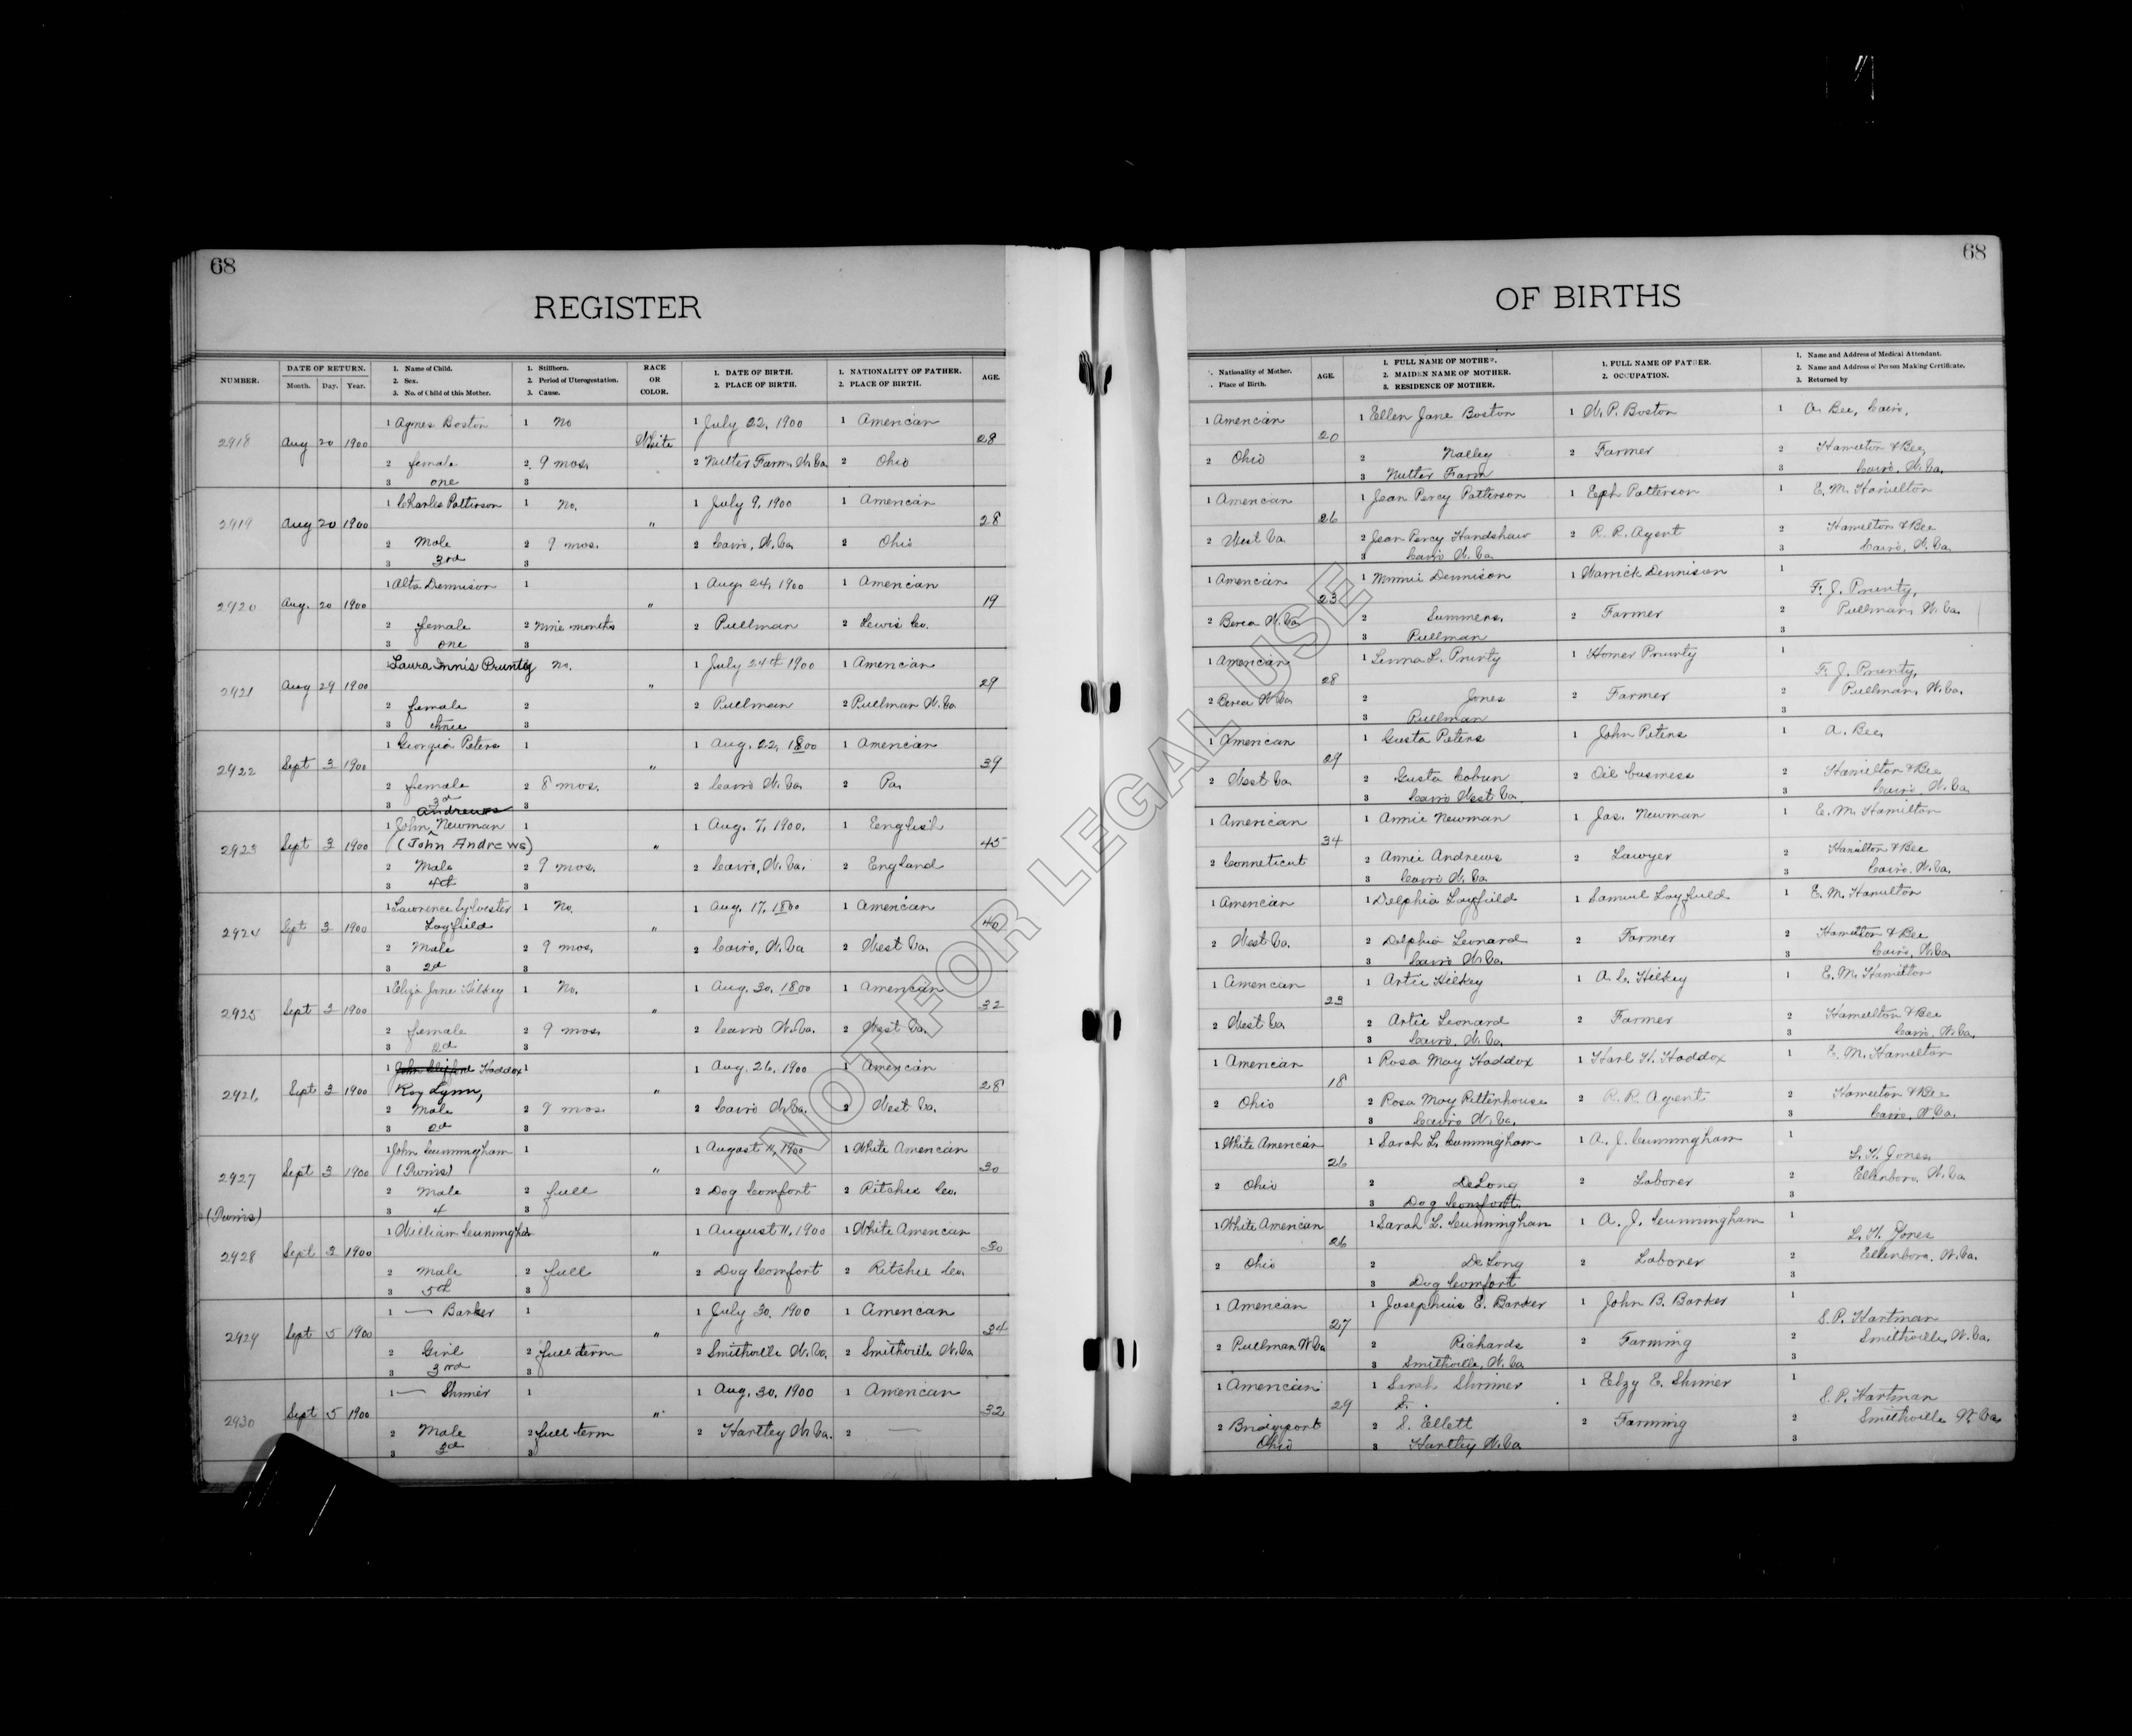 68
REGISTER
NUMBER.
DATE OF RETURN.
Month. Day. Year.
1. Name of Child.
2. Sex.
3. No. of Child of this Mother.
1. Stillborn.
2. Period of Uterogestation.
3. Cause.
RACE
OR
COLOR.
1. DATE OF BIRTH.
2. PLACE OF BIRTH.
1. NATIONALITY OF FATHER.
2. PLACE OF BIRTH.
AGE.
2918 Aug 20 1900 1 Agnes Boston 1 No White 1 July 22, 1900 1 American 28
2 female 2 9 mos. 2 Nutter Farm, W. Va. 2 Ohio
3 one 3
2919 Aug 20 1900 1 Charles Patterson 1 No. " 1 July 9, 1900 1 American 28
2 Male 2 9 mos. 2 Cairo, W. Va. 2 Ohio
3 3rd 3
2920 Aug. 20 1900 1 Alta Dennison 1 " 1 Aug. 24, 1900 1 American 19
2 female 2 Nine months 2 Pullman 2 Lewis Co.
3 one 3
2921 Aug 29 1900 Laura Innis Prunty No. " 1 July 24th 1900 1 American 29
2 female 2 2 Pullman 2 Pullman W. Va
3 three 3
2922 Sept 3 1900 1 Georgia Peters 1 " 1 Aug. 22, 1800 1 American 39
2 female 2 8 mos. 2 Cairo W. Va. 2 Pa.
3 3d 3
Andrews
2923 Sept 3 1900 1 John Newman 1 " 1 Aug. 7, 1900. 1 English 45
(John Andrews)
2 Male 2 9 mos. 2 Cairo, W. Va. 2 England
3 4th 3
2924 Sept 3 1900 1 Lawrence Sylvester 1 No. " 1 Aug. 17, 1800 1 American 40
Layfield
2 Male 2 9 mos. 2 Cairo, W. Va 2 West Va.
3 2d 3
2925 Sept 3 1900 1 Eliza Jane Kilkey 1 No. " 1 Aug. 30, 1800 1 American 32
2 female 2 9 mos. 2 Cairo W. Va. 2 West Va.
3 2d 3
2926 Sept 3 1900 1 Haddox 1 " 1 Aug. 26, 1900 1 American 28
Roy Lynn,
2 Male 2 9 mos 2 Cairo W. Va. 2 West Va.
3 2d 3
2927 Sept 3 1900 1 John Cunningham 1 " 1 August 11, 1900 1 White American 30
(Twins)
2 Male 2 full 2 Dog Comfort 2 Ritchie Co.
3 4 3
(Twins)
2928 Sept 3 1900 1 William Cunningham " 1 August 11, 1900 1 White American 30
2 Male 2 full 2 Dog Comfort 2 Ritchie Co.
3 5th
2929 Sept 5 1900 1 — Barker 1 " 1 July 30, 1900 1 American 34
2 Girl 2 full term 2 Smithville W. Va. 2 Smithville W. Va
3 3rd 3
2930 Sept 5 1900 1 — Shimer 1 " 1 Aug. 30, 1900 1 American 32
2 Male 2 full term 2 Hartley W. Va. 2 —
3 3d 3
68
OF BIRTHS
1. Nationality of Mother.
2. Place of Birth.
AGE.
1. FULL NAME OF MOTHER.
2. MAIDEN NAME OF MOTHER.
3. RESIDENCE OF MOTHER.
1. FULL NAME OF FATHER.
2. OCCUPATION.
1. Name and Address of Medical Attendant.
2. Name and Address of Person Making Certificate.
3. Returned by
1 American 20 1 Ellen Jane Boston 1 W. P. Boston 1 A. Bee, Cairo,
2 Ohio 2 Nalley 2 Farmer 2 Hamilton & Bee,
3 Nutter Farm 3 Cairo, W. Va.
1 American 26 1 Jean Percy Patterson 1 Eph Patterson 1 E. M. Hamilton
2 West Va. 2 Jean Percy Handshaw 2 R. R. Agent 2 Hamilton & Bee
3 Cairo W. Va. 3 Cairo, W. Va.
1 American 23 1 Minnie Dennison 1 Warrick Dennison 1 F. J. Prunty,
2 Berea W. Va. 2 Summers, 2 Farmer 2 Pullman, W. Va.
3 Pullman 3
1 American 28 1 Lenna L. Prunty 1 Homer Prunty 1 F. J. Prunty,
2 Berea W. Va. 2 Jones 2 Farmer 2 Pullman, W. Va.
3 Pullman 3
1 American 29 1 Gusta Peters 1 John Peters 1 A. Bee,
2 West Va. 2 Gusta Cobun 2 Oil business 2 Hamilton & Bee
3 Cairo West Va. 3 Cairo, W. Va.
1 American 34 1 Annie Newman 1 Jas. Newman 1 E. M. Hamilton
2 Conneticut 2 Annie Andrews 2 Lawyer 2 Hamilton & Bee
3 Cairo W. Va. 3 Cairo, W. Va.
1 American 1 Delphia Layfield 1 Samuel Layfield 1 E. M. Hamilton
2 West Va. 2 Delphia Leonard 2 Farmer 2 Hamilton & Bee
3 Cairo W. Va. 3 Cairo, W. Va.
1 American 23 1 Artie Kilkey 1 A. C. Kilkey 1 E. M. Hamilton
2 West Va. 2 Artie Leonard 2 Farmer 2 Hamilton & Bee
3 Cairo, W. Va. 3 Cairo, W. Va.
1 American 18 1 Rosa May Haddox 1 Karl H. Haddox 1 E. M. Hamilton
2 Ohio 2 Rosa May Rittenhouse 2 R. R. Agent 2 Hamilton & Bee
3 Cairo W. Va. 3 Cairo, W. Va.
1 White American 26 1 Sarah L. Cunningham 1 A. J. Cunningham 1 L. H. Jones,
2 Ohio 2 DeLong 2 Laborer 2 Ellenboro, W. Va
3 Dog Comfort 3
1 White American 26 1 Sarah L. Cunningham 1 A. J. Cunningham 1 L. H. Jones
2 Ohio 2 DeLong 2 Laborer 2 Ellenboro, W. Va.
3 Dog Comfort 3
1 American 27 1 Josephine E. Barker 1 John B. Barker 1 S. P. Hartman
2 Pullman W. Va 2 Richards 2 Farming 2 Smithville, W. Va.
3 Smithville, W. Va. 3
1 American 29 1 Sarah Shrimer 1 Elzy E. Shimer 1 S. P. Hartman
2 Bridgeport 2 S. Ellett 2 Farming 2 Smithville W. Va
Ohio 3 Hartley W. Va 3
NOT FOR LEGAL USE